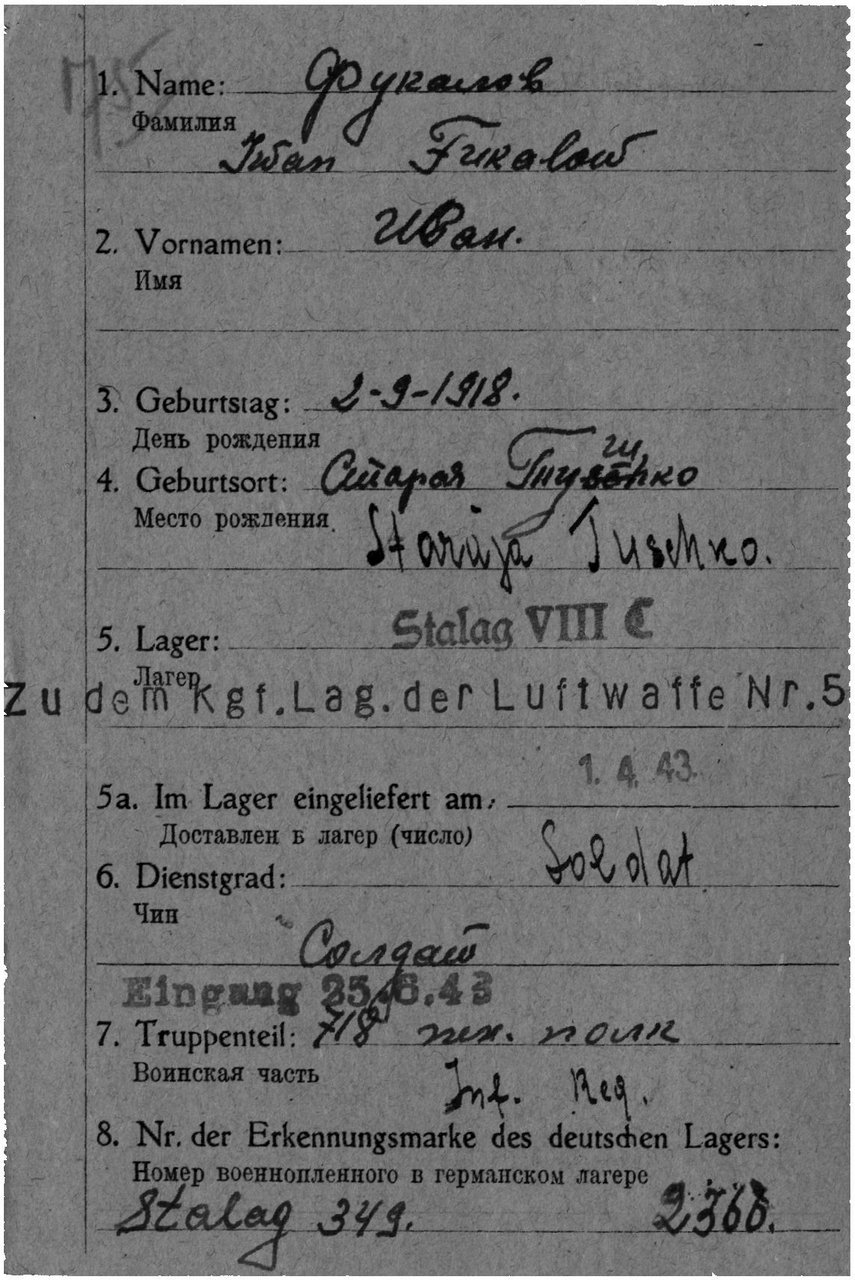 1. Name: Фукалов
Фамилия
Iwan Fukalow
2. Vornamen: Иван.
Имя
3. Geburtstag: 2-9-1918.
День рождения
4. Geburtsort: Старая
Место рождения.
Staraja Tuschko.
5. Lager: Stalag VIII C
Лагер
Zu dem Kgf. Lag. der Luftwaffe Nr. 5
1. 4. 43.
5a. Im Lager eingeliefert am:
Доставлен в лагер (число)
6. Dienstgrad: Soldat
Чин
Солдат
Eingang 25.6.43
7. Truppenteil: 718 пех. полк
Воинская часть
Inf. Reg.
8. Nr. der Erkennungsmarke des deutschen Lagers:
Номер военнопленного в германском лагере
Stalag 349.